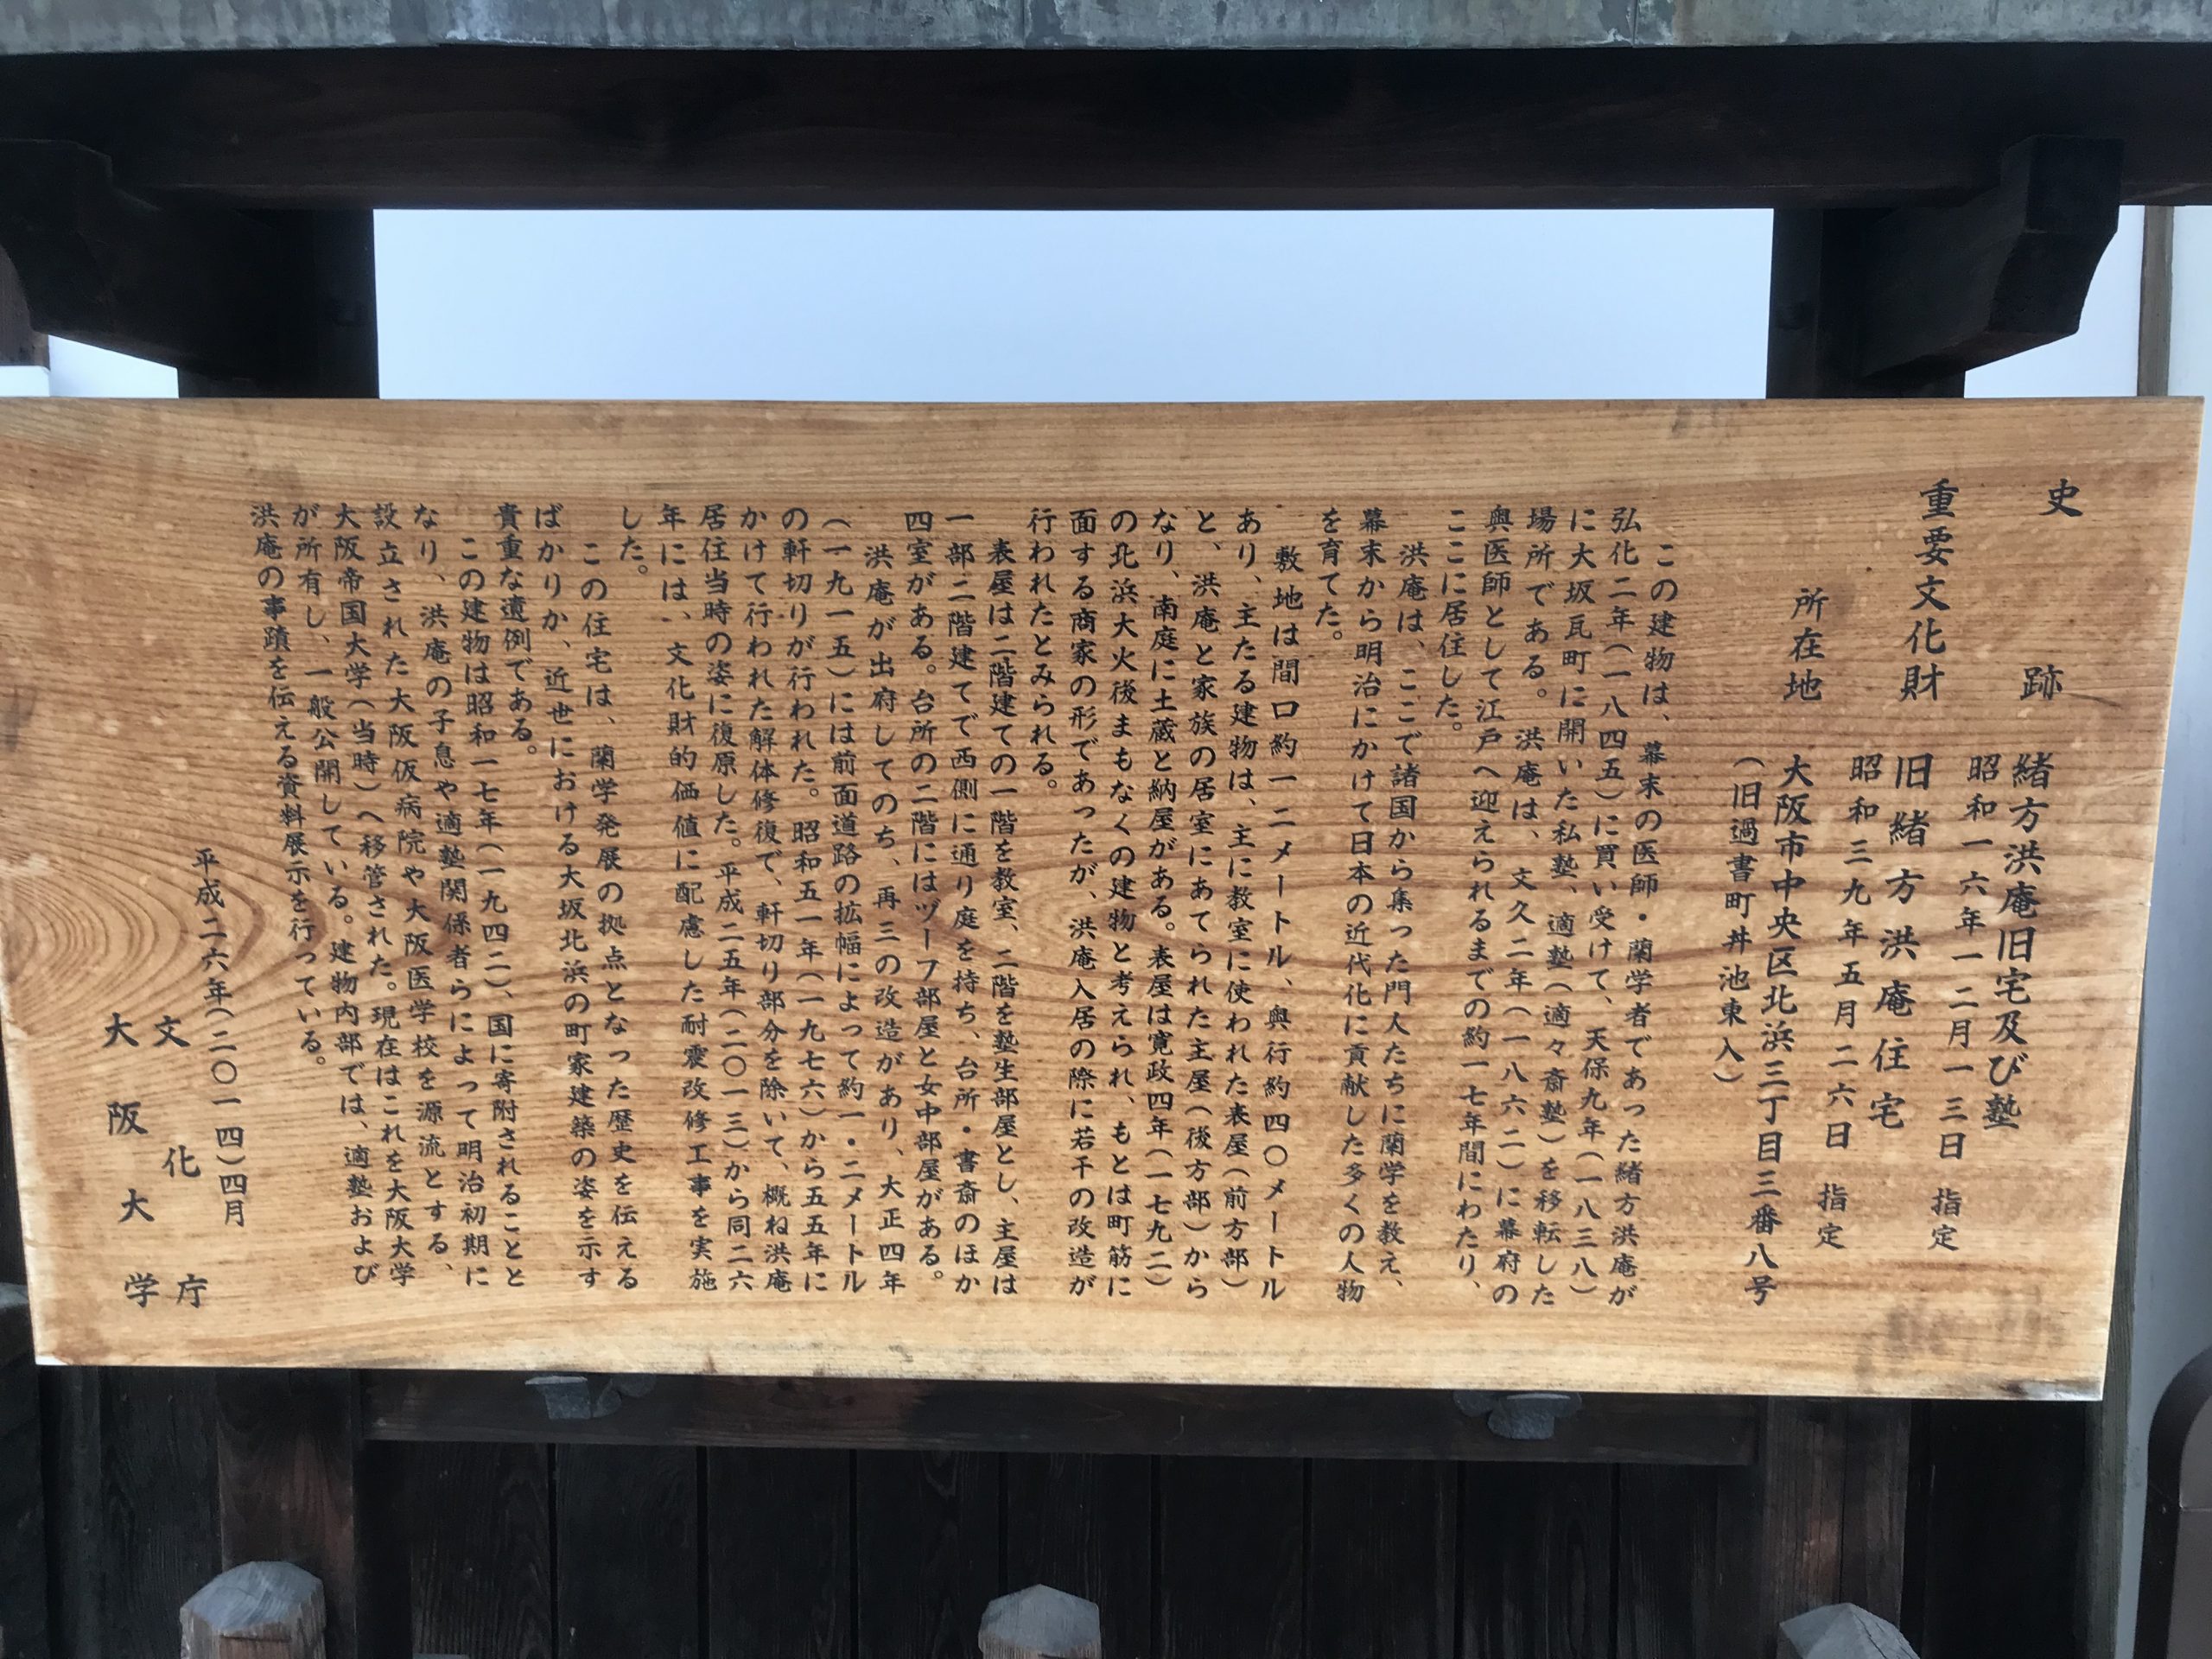 史跡　緒方洪庵旧宅及び塾
昭和一六年一二月一三日　指定
重要文化財　旧緒方洪庵住宅
昭和三九年五月二六日　指定
所在地　大阪市中央区北浜三丁目三番八号
（旧過書町丼池東入）
この建物は、幕末の医師・蘭学者であった緒方洪庵が
弘化二年（一八四五）に買い受けて、天保九年（一八三八）
に大坂瓦町に開いた私塾、適塾（適々斎塾）を移転した
場所である。洪庵は、文久二年（一八六二）に幕府の
奥医師として江戸へ迎えられるまでの約一七年間にわたり、
ここに居住した。
洪庵は、ここで諸国から集った門人たちに蘭学を教え、
幕末から明治にかけて日本の近代化に貢献した多くの人物
を育てた。
敷地は間口約一二メートル、奥行約四〇メートル
あり、主たる建物は、主に教室に使われた表屋（前方部）
と、洪庵と家族の居室にあてられた主屋（後方部）から
なり、南庭に土蔵と納屋がある。表屋は寛政四年（一七九二）
の北浜大火後まもなくの建物と考えられ、もとは町筋に
面する商家の形であったが、洪庵入居の際に若干の改造が
行われたとみられる。
表屋は二階建ての一階を教室、二階を塾生部屋とし、主屋は
一部二階建てで西側に通り庭を持ち、台所・書斎のほか
四室がある。台所の二階にはヅーフ部屋と女中部屋がある。
洪庵が出府してのち、再三の改造があり、大正四年
（一九一五）には前面道路の拡幅によって約一・二メートル
の軒切りが行われた。昭和五一年（一九七六）から五五年に
かけて行われた解体修復で、軒切り部分を除いて、概ね洪庵
居住当時の姿に復原した。平成二五年（二〇一三）から同二六
年には、文化財的価値に配慮した耐震改修工事を実施
した。
この住宅は、蘭学発展の拠点となった歴史を伝える
ばかりか、近世における大坂北浜の町家建築の姿を示す
貴重な遺例である。
この建物は昭和一七年（一九四二）、国に寄附されることと
なり、洪庵の子息や適塾関係者らによって明治初期に
設立された大阪仮病院や大阪医学校を源流とする、
大阪帝国大学（当時）へ移管された。現在はこれを大阪大学
が所有し、一般公開している。建物内部では、適塾および
洪庵の事蹟を伝える資料展示を行っている。
平成二六年（二〇一四）四月
文化庁
大阪大学